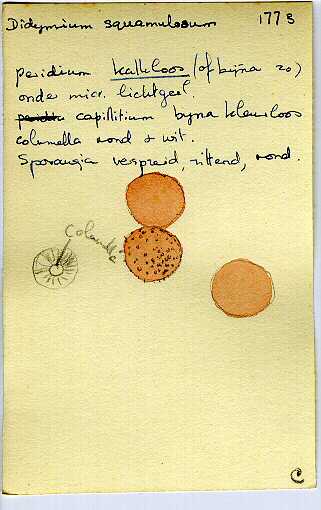 Didymium squamulosum 1778
peridium kalkloos (of bijna zo)
onder micr. lichtgeel.
capillitium byna kleurloos
columella rond & wit.
Sporangia verspreid, zittend, rond.
Columella
C